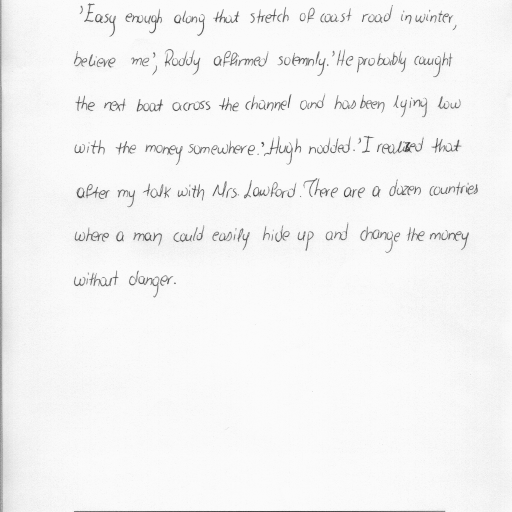 'Easy enough along that stretch of coast road in winter,
believe me', Roddy affirmed solemnly.'He probably caught
the next boat across the channel and has been lying low
with the money somewhere.' Hugh nodded.'I realized that
after my talk with Mrs. Lawford. There are a dozen countries
where a man could easily hide up and change the money
without danger.